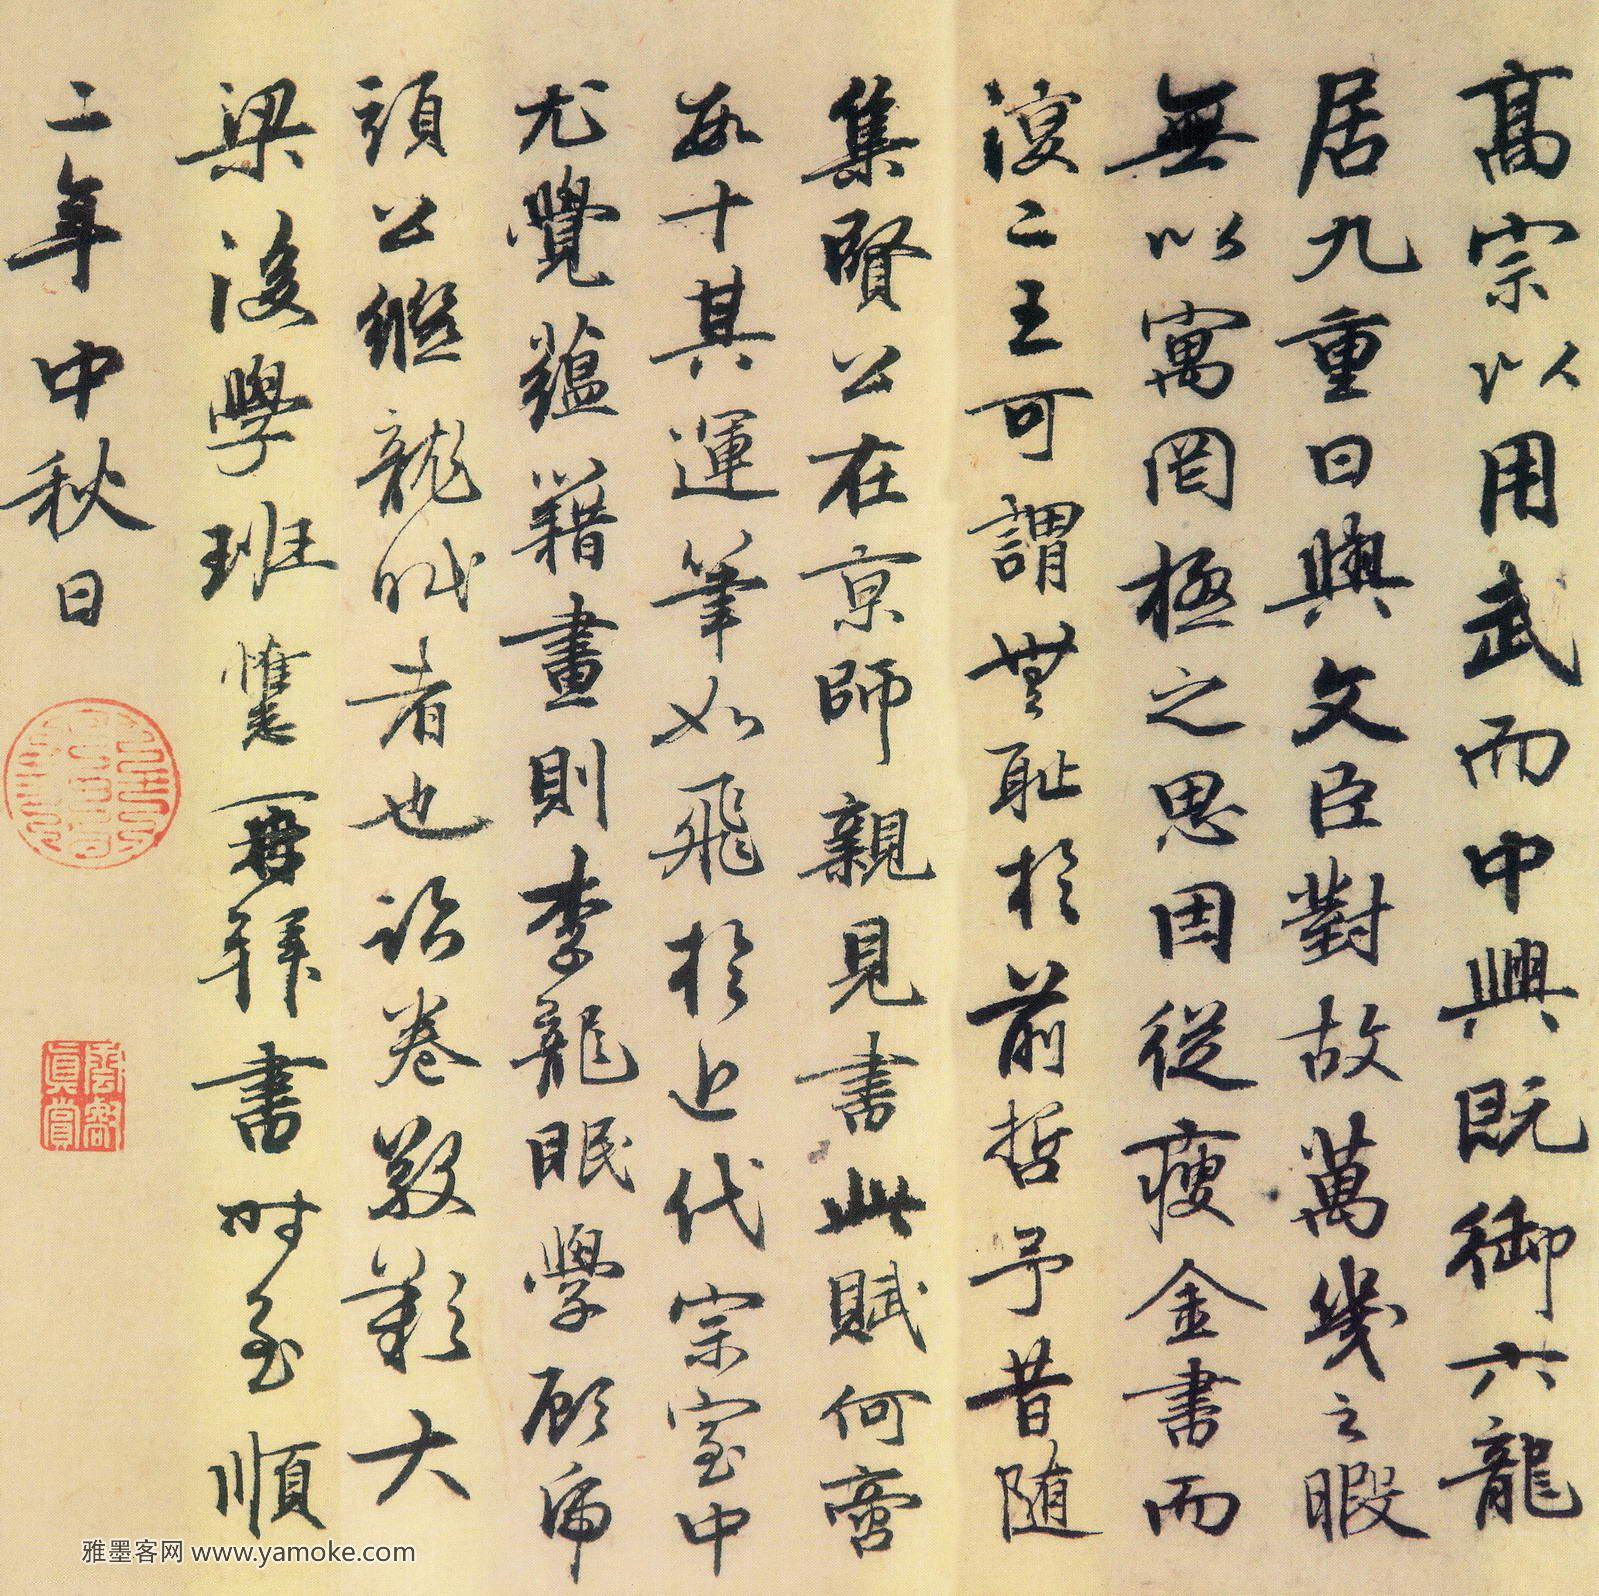 高宗以用武而中興既御六龍
居九重日與文臣對故萬幾之暇
無以寓罔極之思因從瘦金書而
復二王可謂無恥於前哲予昔隨
集賢公在京師親見書此賦何啻
數十其運筆如飛於近代宗室中
尤覺蘊藉畫則李龍眠學顧虎
頭公縱龍眠者也詒卷敬題大
梁後學班惟志再拜書時至順
二年中秋日
真賞
雅墨客网 www.yamoke.com